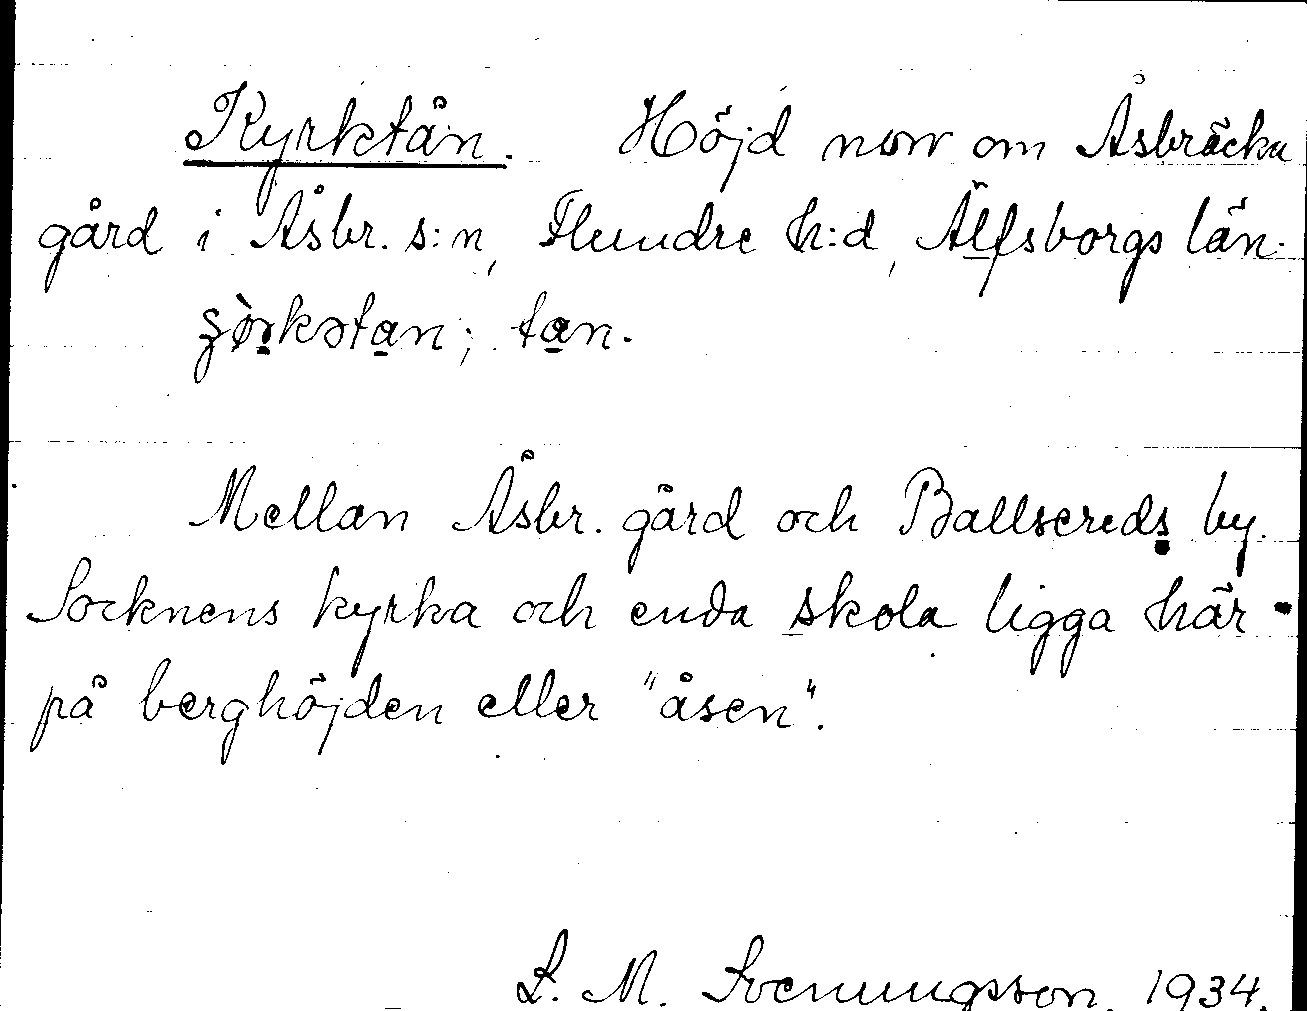 Kyrktån. Höjd norr om Åsbräcka
gård i Åsbr. s:n, Flundre h:d, Älfsborgs län.
tan.
Mellan Åsbr. gård och Ballsereds by.
Socknens kyrka och enda skola ligga här
på berghöjden eller "åsen".
L. M. Svenungsson. 1934.